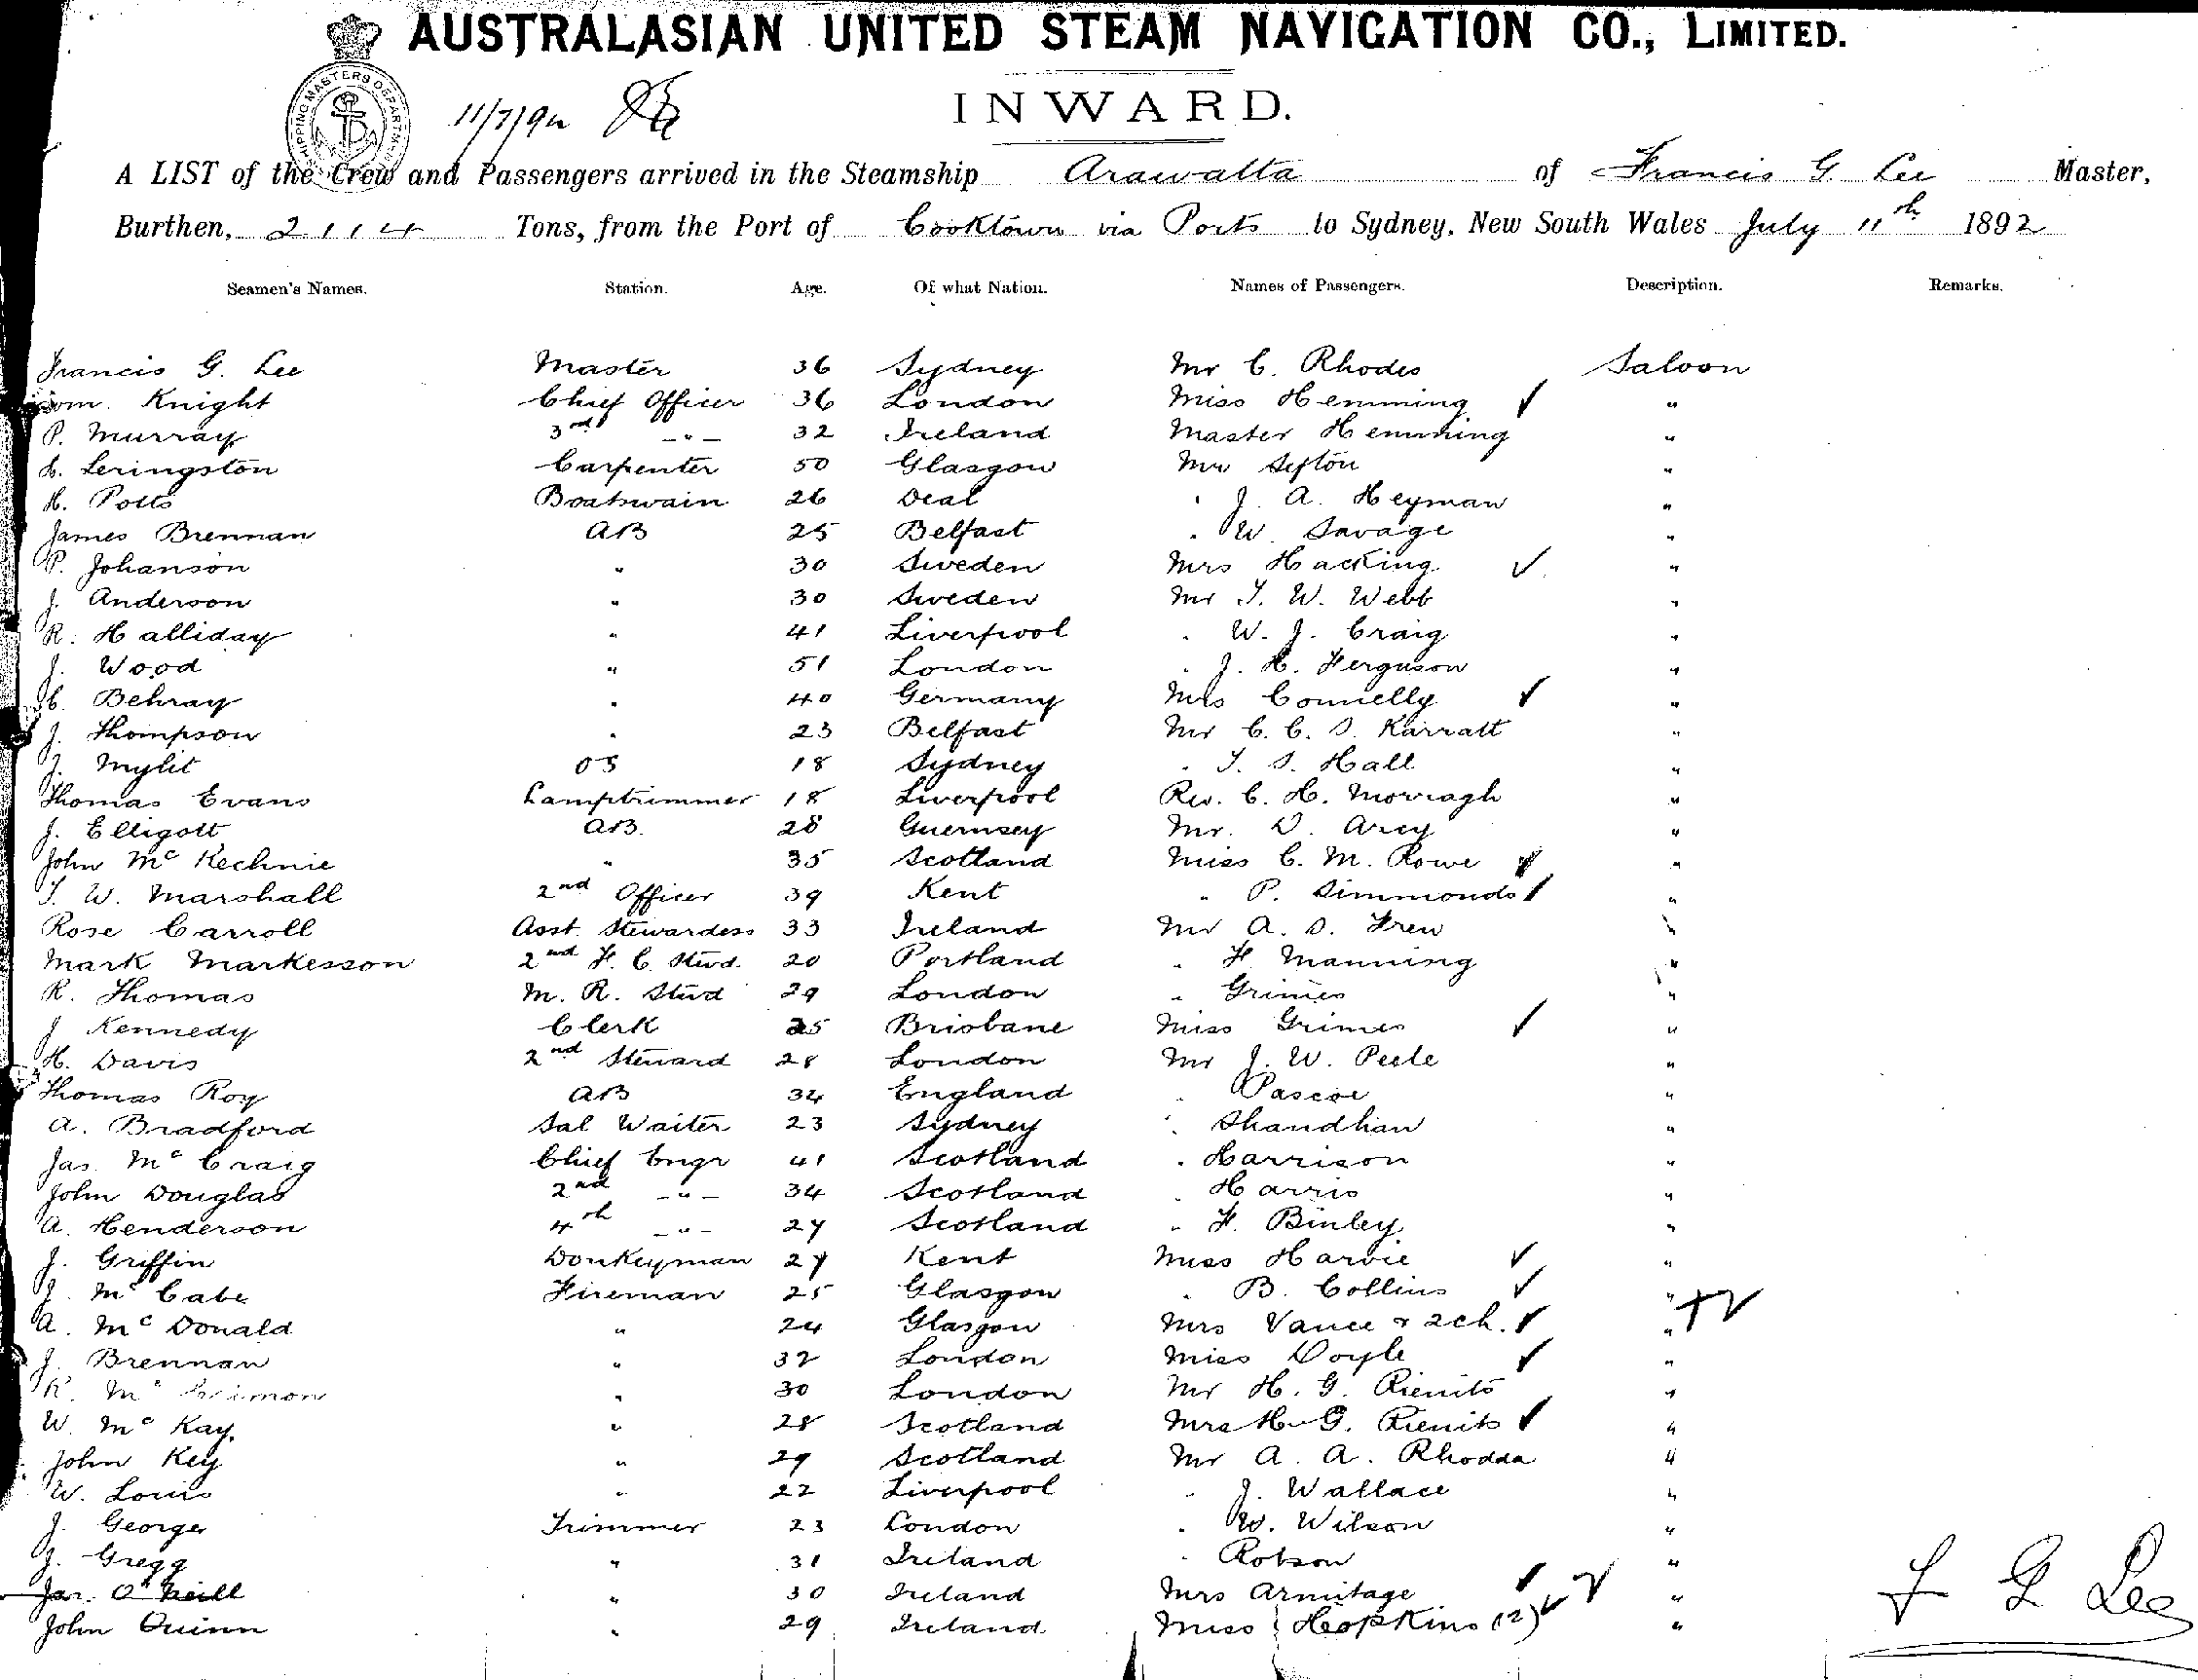 AUSTRALASIAN UNITED STEAM NAVIGATION CO., LIMITED.
SHIPPING MASTERS DEPARTMENT
11/7/92
INWARD.
A LIST of the Crew and Passengers arrived in the Steamship Arawatta of Francis G. Lee Master,
Burthen, 2114 Tons, from the Port of Cooktown via Ports to Sydney, New South Wales July 11th 1892
Seamen's Names. Station. Age. Of what Nation. Names of Passengers. Description. Remarks.
Francis G. Lee Master 36 Sydney Mr C. Rhodes Saloon
Knight Chief Officer 36 London Miss Hemming ✓ "
P. Murray 3rd -"- 32 Ireland Master Hemming "
Leringston Carpenter 50 Glasgow Mr Sefton "
H. Potts Boatswain 26 Deal " J. A. Heyman "
James Brennan AB 25 Belfast " W. Savage "
P. Johanson " 30 Sweden Mrs Hacking ✓ "
J. Anderson " 30 Sweden Mr T. W. Webb "
R. Halliday " 41 Liverpool " W. J. Craig "
J. Wood " 51 London " J. H. Ferguson "
C. Behray " 40 Germany Mrs Connelly ✓ "
J. Thompson " 23 Belfast Mr C. C. S. Karratt "
J. Mylit OS 18 Sydney " T. S. Hall "
Thomas Evans Lamptrimmer 18 Liverpool Rev. C. H. Morragh "
J. Elligott AB. 28 Guernsey Mr. D. Arcy "
John McKechnie " 35 Scotland Miss C. M. Rowe ✓ "
T. W. Marshall 2nd Officer 39 Kent " P. Simmonds ✓ "
Rose Carroll Asst. Stewardess 33 Ireland Mr A. S. Frew "
Mark Markesson 2nd F. C. Stwd. 20 Portland " F. Manning "
R. Thomas M. R. Stwd 29 London " Grimes "
J Kennedy Clerk 25 Brisbane Miss Grimes ✓ "
H. Davis 2nd Steward 28 London Mr J. W. Peele "
Thomas Roy AB 34 England " Pascoe "
A. Bradford Sal Waiter 23 Sydney " Shandhan "
Jas. McCraig Chief Engr 41 Scotland " Harrison "
John Douglas 2nd -"- 34 Scotland " Harris "
A. Henderson 4th -"- 27 Scotland " F. Binley "
J. Griffin Donkeyman 27 Kent Miss Harvie ✓ "
J. McCabe Fireman 25 Glasgow " B. Collins ✓ "
A. McDonald " 24 Glasgow Mrs Vance & 2 ch. ✓ "
J. Brennan " 32 London Miss Doyle ✓ "
R. Mc " 30 London Mr H. G. Rienits "
W. McKay " 28 Scotland Mrs H. G. Rienits ✓ "
John Key " 29 Scotland Mr A. A. Rhodda "
W. Louis " 22 Liverpool " J. Wallace "
J. George Trimmer 23 London " W. Wilson "
J. Gregg " 31 Ireland " Robson "
Jas. O'Neill " 30 Ireland Mrs Armitage ✓ "
John Quinn " 29 Ireland Miss Hopkins (2) ✓ "
F G Lee